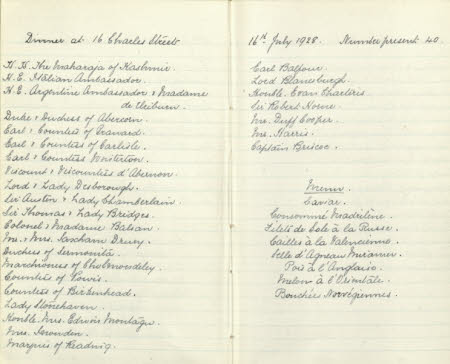 Dinner at 16 Charles Street
H. H. The Maharaja of Kashmir.
H. E. Italian Ambassador.
H. E. Argentine Ambassador & Madame
de
Duke & Duchess of Abercorn
Earl & Countess of Granard.
Earl & Countess of Carlisle.
Earl & Countess Winterton.
Viscount & Viscountess d'Abernon.
Lord & Lady Desborough.
Sir Austen & Lady Chamberlain.
Sir Thomas & Lady Bridges.
Colonel & Madame Balsan.
Mr. & Mrs. Saxham Drury.
Duchess of Sermoneta.
Marchioness of Cholmondeley.
Countess of Powis.
Countess of Birkenhead.
Lady Stonehaven.
Honble. Mrs. Edwin Montagu.
Mrs. Snowden.
Marquis of Reading.
16th July 1928. Number present 40.
Earl Balfour.
Lord Blanesburgh.
Honble. Evan Charteris.
Sir Robert Horne.
Mr. Duff Cooper.
Mr. Harris.
Captain Briscoe.
Menu.
Caviar.
Consommé Madrilène.
Filets de Sole à la Russe.
Cailles à la Valencienne.
Selle d'Agneau Mirannes.
Pois à l'Anglaise.
Melon à l'Orientale.
Bouchées Norvégiennes.